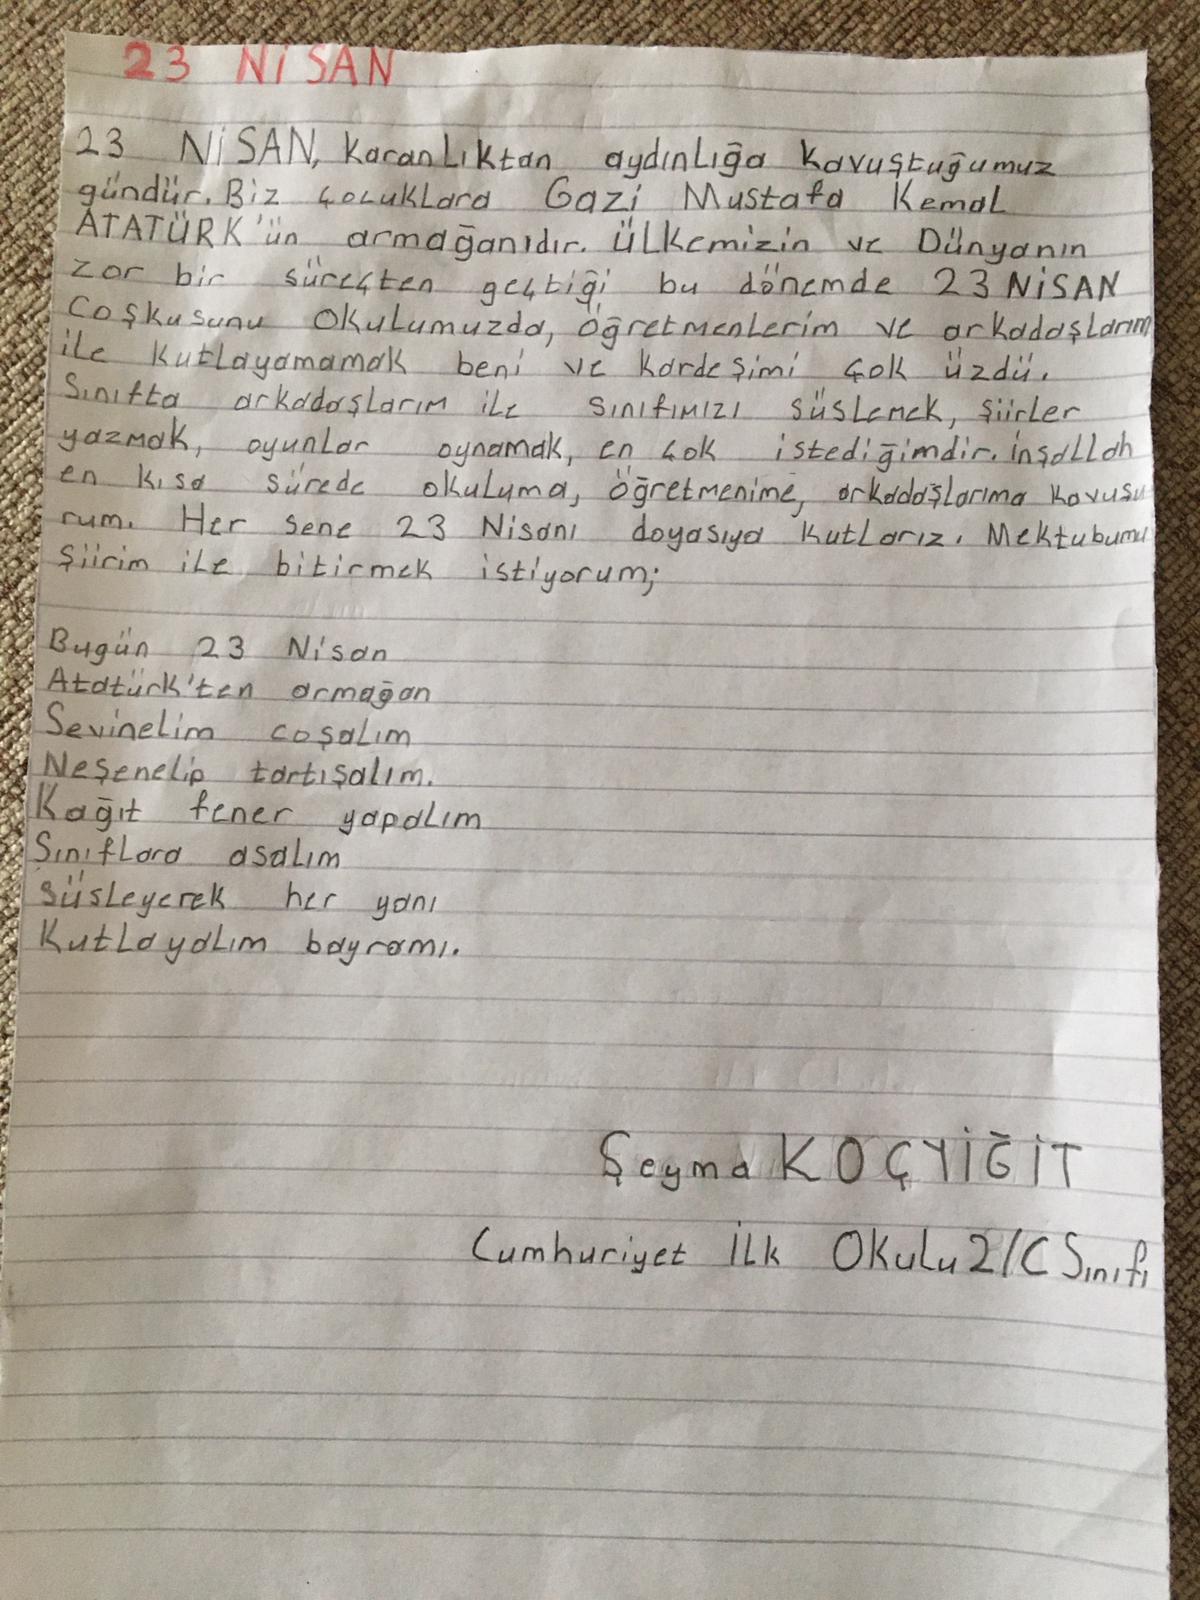 23 NiSAN
23 NiSAN, karanlıktan aydınlığa kavuştuğumuz
gündür. Biz çocuklara Gazi Mustafa Kemal
ATATÜRK'ün armağanıdır. Ülkemizin ve Dünyanın
zor bir süreçten geçtiği bu dönemde 23 NiSAN
Coşkusunu Okulumuzda, öğretmenlerim ve arkadaşlarım
ile kutlayamamak beni ve kardeşimi çok üzdü.
Sınıfta arkadaşlarım ile sınıfımızı süslemek, şiirler
yazmak, oyunlar oynamak, en çok istediğimdir. inşallah
en kısa sürede okuluma, öğretmenime, arkadaşlarıma kavuşu
rum. Her sene 23 Nisanı doyasıya kutlarız. Mektubumu
şiirim ile bitirmek istiyorum;
Bugün 23 Nisan
Atatürk'ten armağan
Sevinelim coşalım
Neşenelip tartışalım.
Kağıt fener yapalım
Sınıflara asalım
Süsleyerek her yanı
Kutlayalım bayramı.
Şeyma KOÇYİĞİT
Cumhuriyet İlk Okulu 2/C Sınıfı